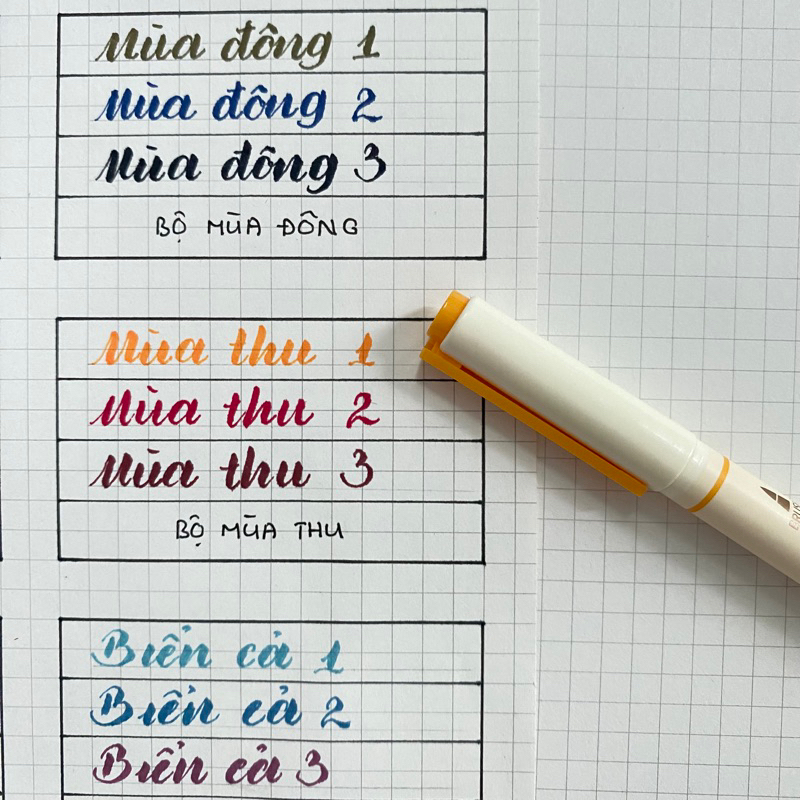 Mùa đông 1
Mùa đông 2
Mùa đông 3
BỘ MÙA ĐÔNG
Mùa thu 1
Mùa thu 2
Mùa thu 3
BỘ MÙA THU
Biển cả 1
Biển cả 2
Biển cả 3